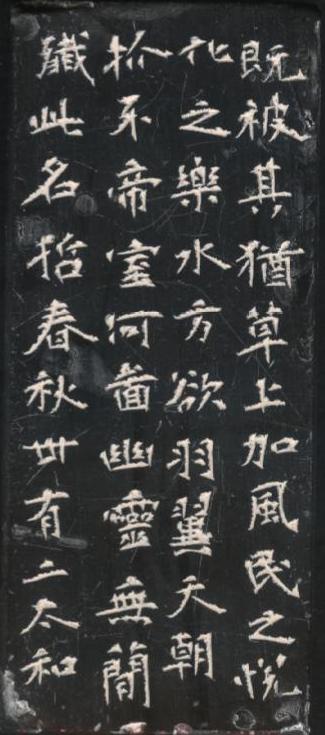 既被其猶草上加風民之悅
化之樂水方欲羽翼天朝
抓牙帝室何啚幽靈無簡
殲此名哲春秋卅有二太和